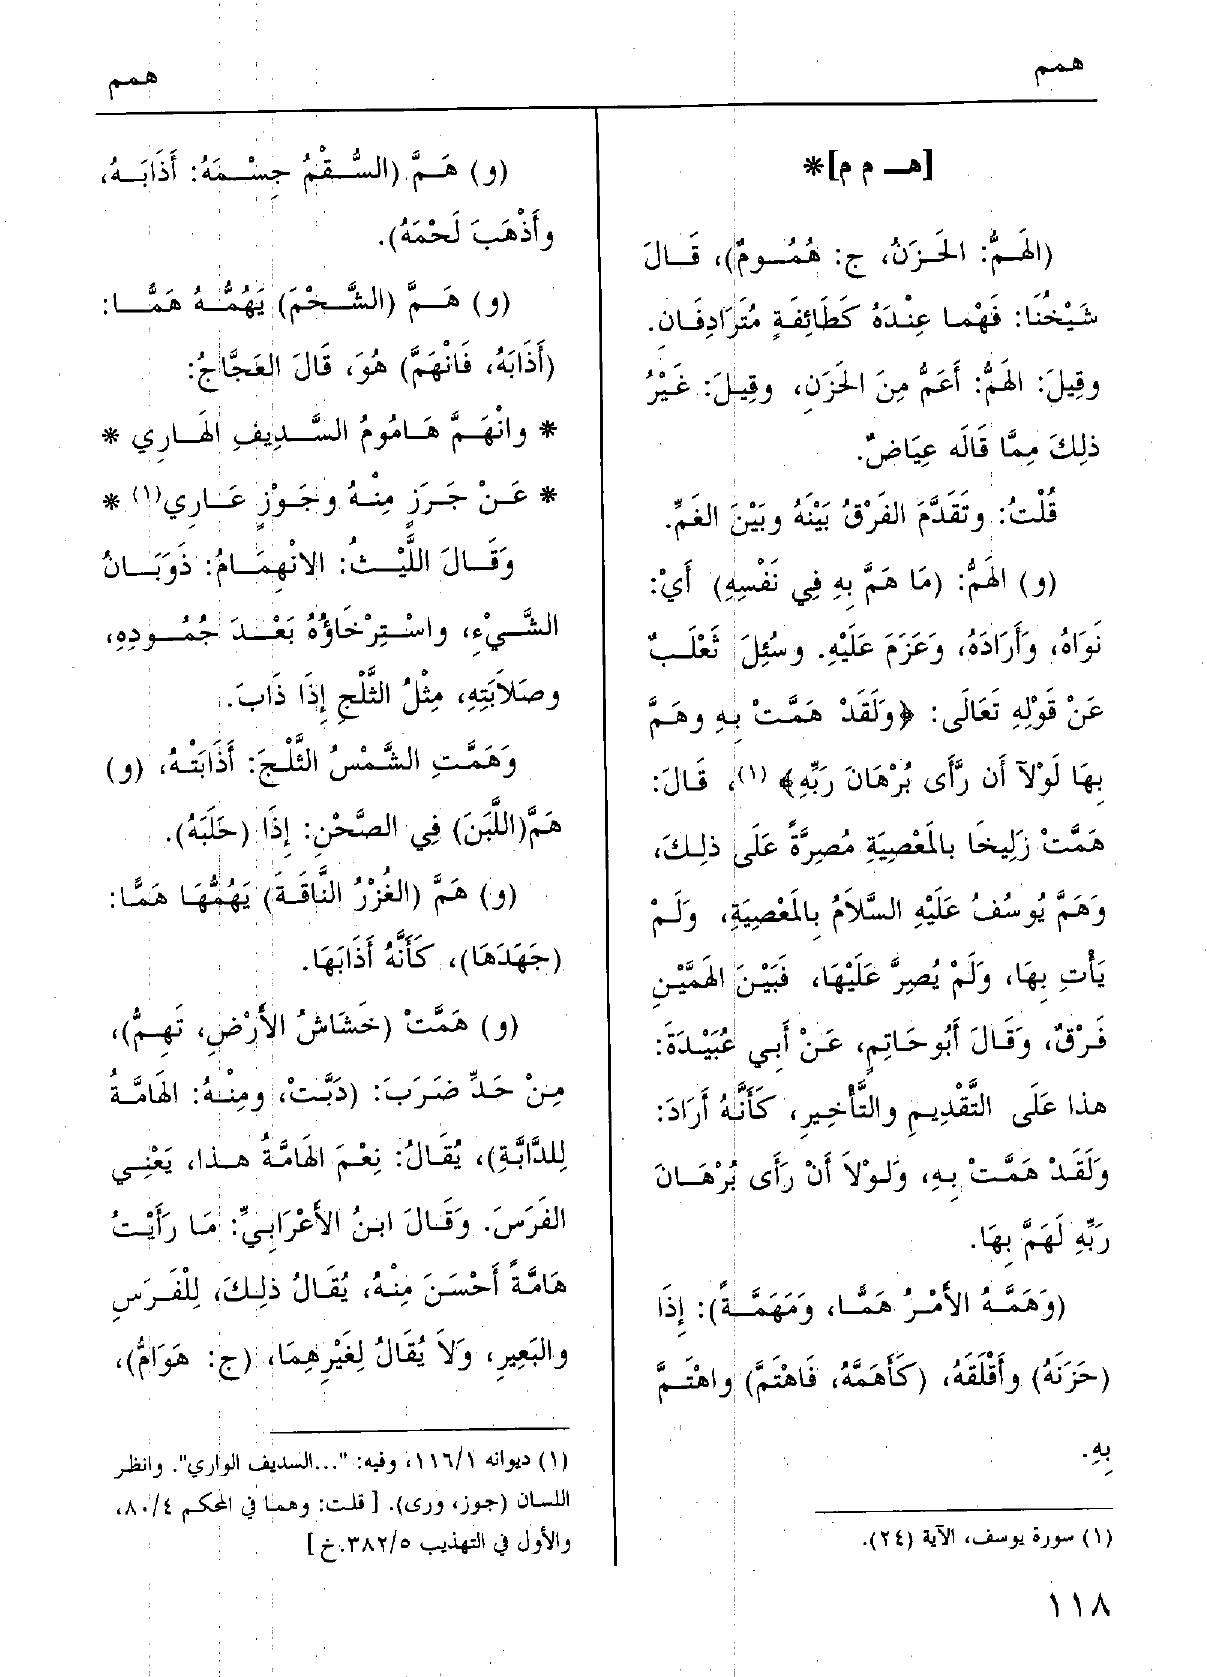 همم
همم
[هـ م م]*
(الهَمُّ: الحَزَنُ، ج: هُمُومٌ)، قَالَ
شَيْخُنَا: فَهُمَا عِنْدَهُ كَطَائِفَةٍ مُتَرَادِفَانِ.
وقِيلَ: الهَمُّ: أَعَمُّ مِنَ الحَزَنِ، وقِيلَ: غَيْرُ
ذلِكَ مِمَّا قَالَه عِيَاضٌ.
قُلْتُ: وتَقَدَّمَ الفَرْقُ بَيْنَهُ وبَيْنَ الغَمِّ.
(و) الهَمُّ: (مَا هَمَّ بِهِ فِي نَفْسِهِ) أَيْ:
نَوَاهُ، وَأَرَادَهُ، وَعَزَمَ عَلَيْهِ. وسُئِلَ ثَعْلَبٌ
عَنْ قَوْلِهِ تَعَالَى: ﴿وَلَقَدْ هَمَّتْ بِهِ وهَمَّ
بِهَا لَوْلَآ أَن رَّأَى بُرْهَانَ رَبِّهِ﴾ (١)، قَالَ:
هَمَّتْ زَلِيخَا بالمَعْصِيَةِ مُصِرَّةً عَلَى ذلِكَ،
وَهَمَّ يُوسُفُ عَلَيْهِ السَّلاَمُ بِالمَعْصِيَةِ، ولَمْ
يَأْتِ بِهَا، ولَمْ يُصِرَّ عَلَيْهَا، فَبَيْنَ الهَمَّيْنِ
فَرْقٌ، وَقَالَ أَبُوحَاتِمٍ، عَنْ أَبِي عُبَيْدَةَ:
هذا عَلَى التَّقْدِيمِ والتَّأْخِيرِ، كَأَنَّهُ أَرَادَ:
ولَقَدْ هَمَّتْ بِهِ، ولَوْلاَ أَنْ رَأَى بُرْهَانَ
رَبِّهِ لَهَمَّ بِهَا.
(وَهَمَّهُ الأَمْرُ هَمًّا، ومَهَمَّةً): إِذَا
(حَزَنَهُ) وأَقْلَقَهُ، (كَأَهَمَّهُ، فَاهْتَمَّ) واهْتَمَّ
بِهِ.
(١) سورة يوسف، الآية (٢٤).
(و) هَمَّ (السُّقْمُ جِسْمَهُ: أَذَابَهُ،
وأَذْهَبَ لَحْمَهُ).
(و) هَمَّ (الشَّحْمَ) يَهُمُّهُ هَمًّا:
(أَذَابَهُ، فَانْهَمَّ) هُوَ، قَالَ العَجَّاجُ:
* وانْهَمَّ هَامُومُ السَّدِيفِ الهَارِي *
* عَنْ جَرَزٍ مِنْهُ وجَوْزٍ عَارِي(١) *
وَقَالَ اللَّيْثُ: الانْهِمَامُ: ذَوَبَانُ
الشَّيْءِ، واسْتِرْخَاؤُهُ بَعْدَ جُمُودِهِ،
وصَلاَبَتِهِ، مِثْلُ الثَّلْجِ إِذَا ذَابَ.
وَهَمَّتِ الشَّمْسُ الثَّلْجَ: أَذَابَتْهُ، (و)
هَمَّ(اللَّبَنَ) فِي الصَّحْنِ: إِذَا (حَلَبَهُ).
(و) هَمَّ (الغُزْرُ النَّاقَةَ) يَهُمُّهَا هَمًّا:
(جَهَدَهَا)، كَأَنَّهُ أَذَابَهَا.
(و) هَمَّتْ (خَشَاشُ الأَرْضِ، تَهِمُّ)،
مِنْ حَدِّ ضَرَبَ: (دَبَّتْ، ومِنْهُ: الهَامَّةُ
لِلدَّابَّةِ)، يُقَالُ: نِعْمَ الهَامَّةُ هذا، يَعْنِي
الفَرَسَ. وَقَالَ ابنُ الأَعْرَابِيِّ: مَا رَأَيْتُ
هَامَّةً أَحْسَنَ مِنْهُ، يُقَالُ ذلِكَ، لِلْفَرَسِ
والبَعِيرِ، ولاَ يُقَالُ لِغَيْرِهِمَا، (ج: هَوَامُّ)،
(١) ديوانه ١١٦/١، وفيه: "...السديف الواري". وانظر
اللسان (جوز، ورى). [ قلت: وهما في المحكم ٨٠/٤،
والأول في التهذيب ٣٨٢/٥.خ]
١١٨